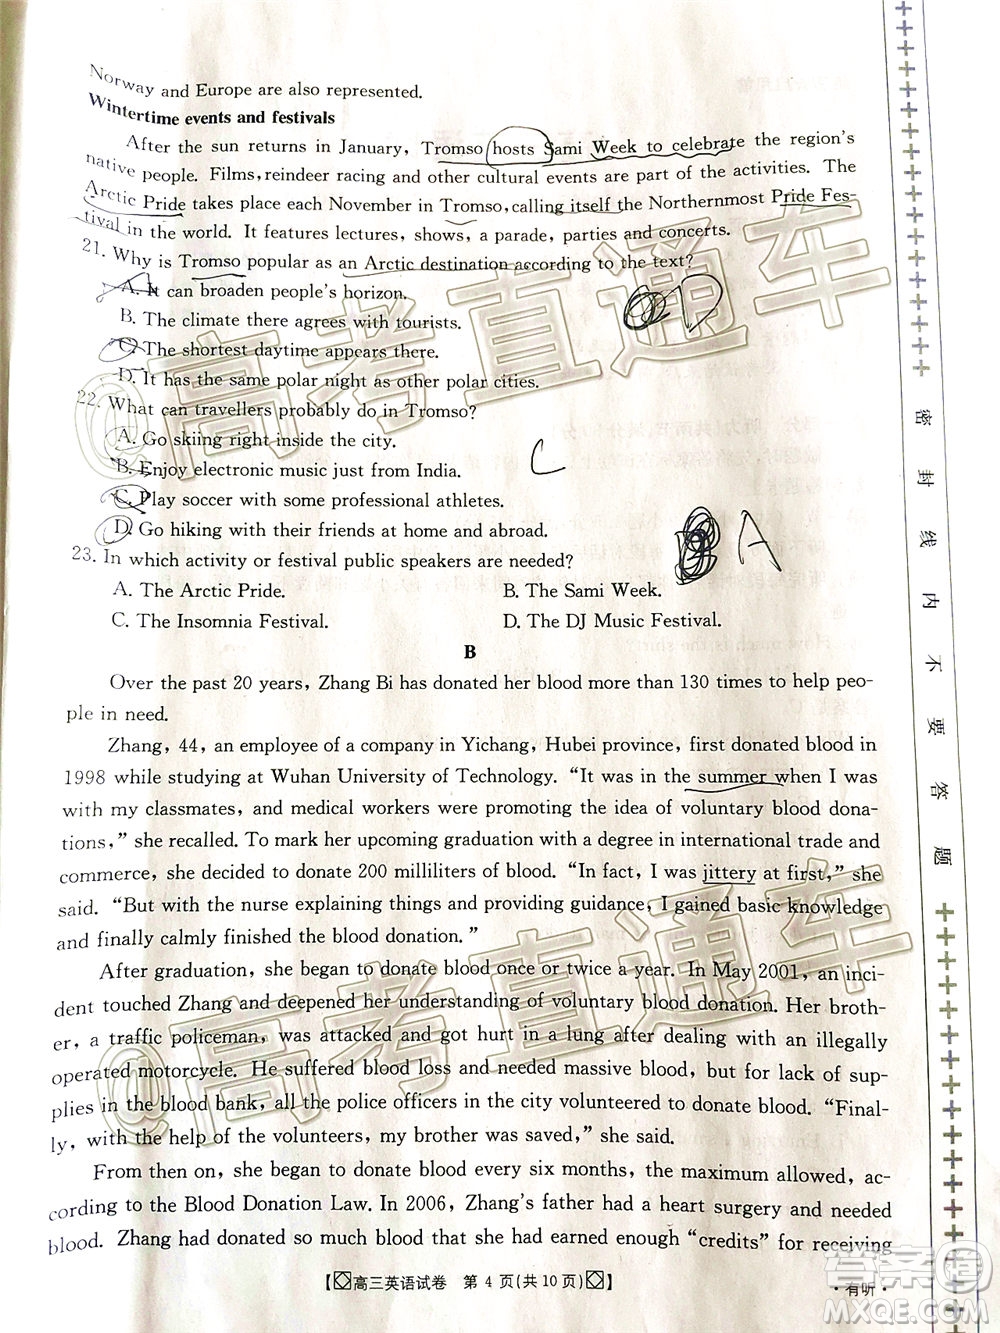 Norway and Europe are also represented.
Wintertime events and festivals
After the sun returns in January, Tromso hosts Sami Week to celebrate the region's
native people. Films, reindeer racing and other cultural events are part of the activities. The
Arctic Pride takes place each November in Tromso, calling itself the Northernmost Pride Fes-
tival in the world. It features lectures, shows, a parade, parties and concerts.
21. Why is Tromso popular as an Arctic destination according to the text?
A. It can broaden people's horizon.
B. The climate there agrees with tourists.
C. The shortest daytime appears there.
D. It has the same polar night as other polar cities.
D
22. What can travellers probably do in Tromso?
A. Go skiing right inside the city.
B. Enjoy electronic music just from India.
C. Play soccer with some professional athletes.
D. Go hiking with their friends at home and abroad.
C
23. In which activity or festival public speakers are needed?
A. The Arctic Pride. B. The Sami Week.
C. The Insomnia Festival. D. The DJ Music Festival.
A
B
Over the past 20 years, Zhang Bi has donated her blood more than 130 times to help peo-
ple in need.
Zhang, 44, an employee of a company in Yichang, Hubei province, first donated blood in
1998 while studying at Wuhan University of Technology. “It was in the summer when I was
with my classmates, and medical workers were promoting the idea of voluntary blood dona-
tions,” she recalled. To mark her upcoming graduation with a degree in international trade and
commerce, she decided to donate 200 milliliters of blood. “In fact, I was jittery at first,” she
said. “But with the nurse explaining things and providing guidance, I gained basic knowledge
and finally calmly finished the blood donation.”
After graduation, she began to donate blood once or twice a year. In May 2001, an inci-
dent touched Zhang and deepened her understanding of voluntary blood donation. Her broth-
er, a traffic policeman, was attacked and got hurt in a lung after demanding an illegally
operated motorcycle. He suffered blood loss and needed massive blood, but for lack of sup-
plies in the blood bank, all the police officers in the city volunteered to donate blood. “Final-
ly, with the help of the volunteers, my brother was saved,” she said.
From then on, she began to donate blood every six months, the maximum allowed, ac-
cording to the Blood Donation Law. In 2006, Zhang's father had a heart surgery and needed
blood. Zhang had donated so much blood that she had earned enough “credits” for receiving
【高三英语试卷 第 4 页(共 10 页)】
·有听·
密封线内不要答题
@高考直通车
@高考直通车
答案圈
MXQE.COM